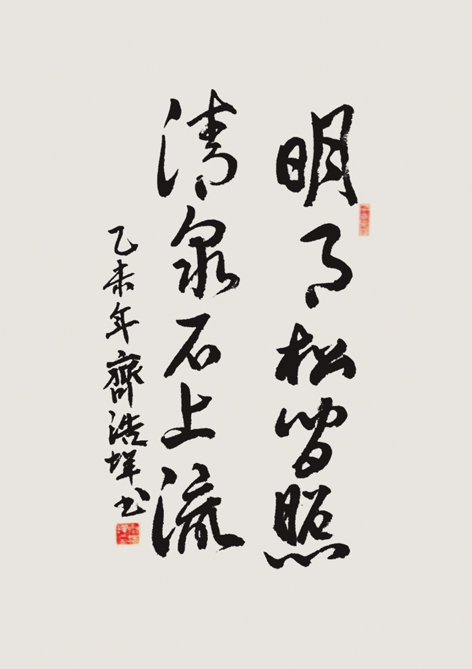 明月松间照
清泉石上流
乙未年齊浩垟书